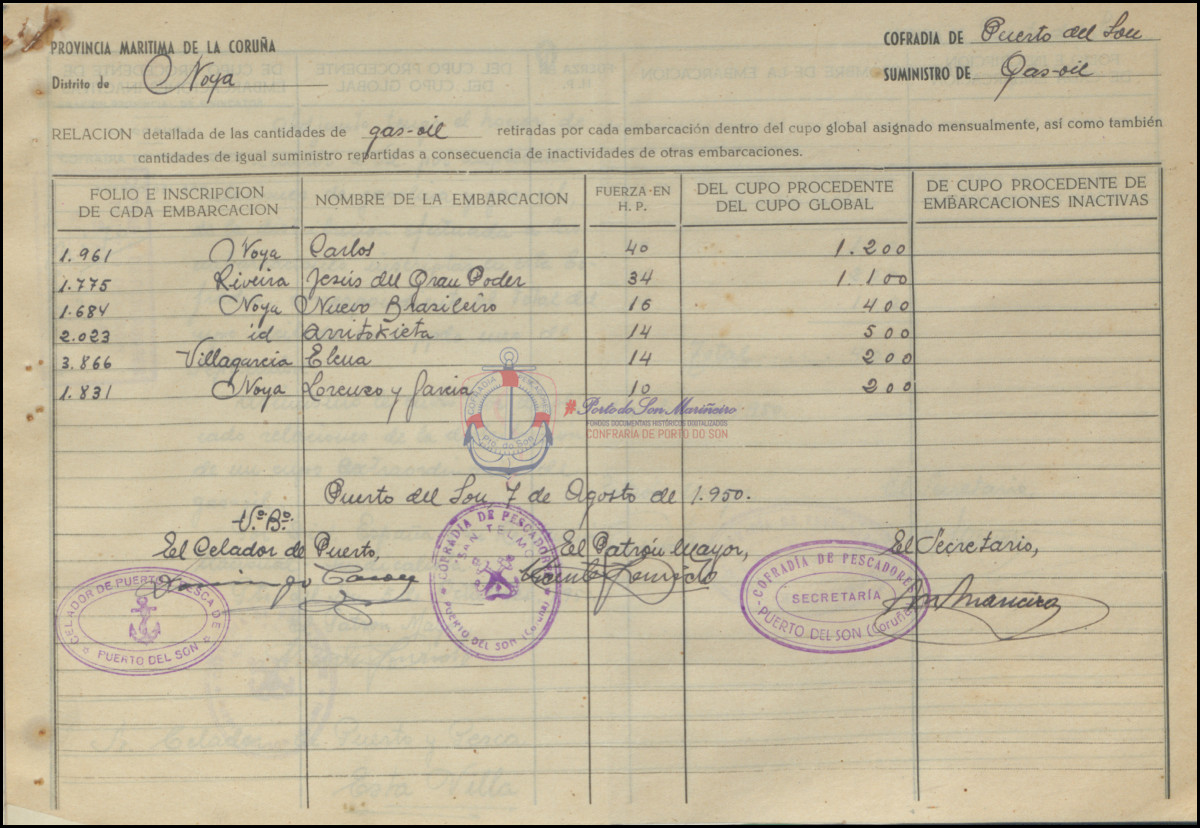 PROVINCIA MARITIMA DE LA CORUÑA
COFRADIA DE Puerto del Son
Distrito de Noya
SUMINISTRO DE Gas-oil
RELACION detallada de las cantidades de gas-oil retiradas por cada embarcación dentro del cupo global asignado mensualmente, así como también
cantidades de igual suministro repartidas a consecuencia de inactividades de otras embarcaciones.
FOLIO E INSCRIPCION DE CADA EMBARCACION NOMBRE DE LA EMBARCACION FUERZA EN H. P. DEL CUPO PROCEDENTE DEL CUPO GLOBAL DE CUPO PROCEDENTE DE EMBARCACIONES INACTIVAS
1.961 Noya Carlos 40 1.200
1.775 Riveira Jesús del Gran Poder 34 1.100
1.684 Noya Nuevo Brasileiro 16 400
2.023 id Arritokieta 14 500
3.866 Villagarcia Elena 14 200
1.831 Noya Lorenzo y Garcia 10 200
COFRADIA PESCADORES
Pto. do Son
#Porto do Son Mariñeiro
FONDOS DOCUMENTAIS HISTÓRICOS DIGITALIZADOS
CONFRARÍA DE PORTO DO SON
Puerto del Son, 7 de Agosto de 1.950.
Vº Bº
El Celador de Puerto, El Patrón Mayor, El Secretario,
CELADOR DE PUERTO PESCA DE
PUERTO DEL SON
COFRADIA DE PESCADORES
"SAN TELMO"
PUERTO DEL SON (Coruña)
COFRADÍA DE PESCADORES
SECRETARÍA
PUERTO DEL SON (Coruña)